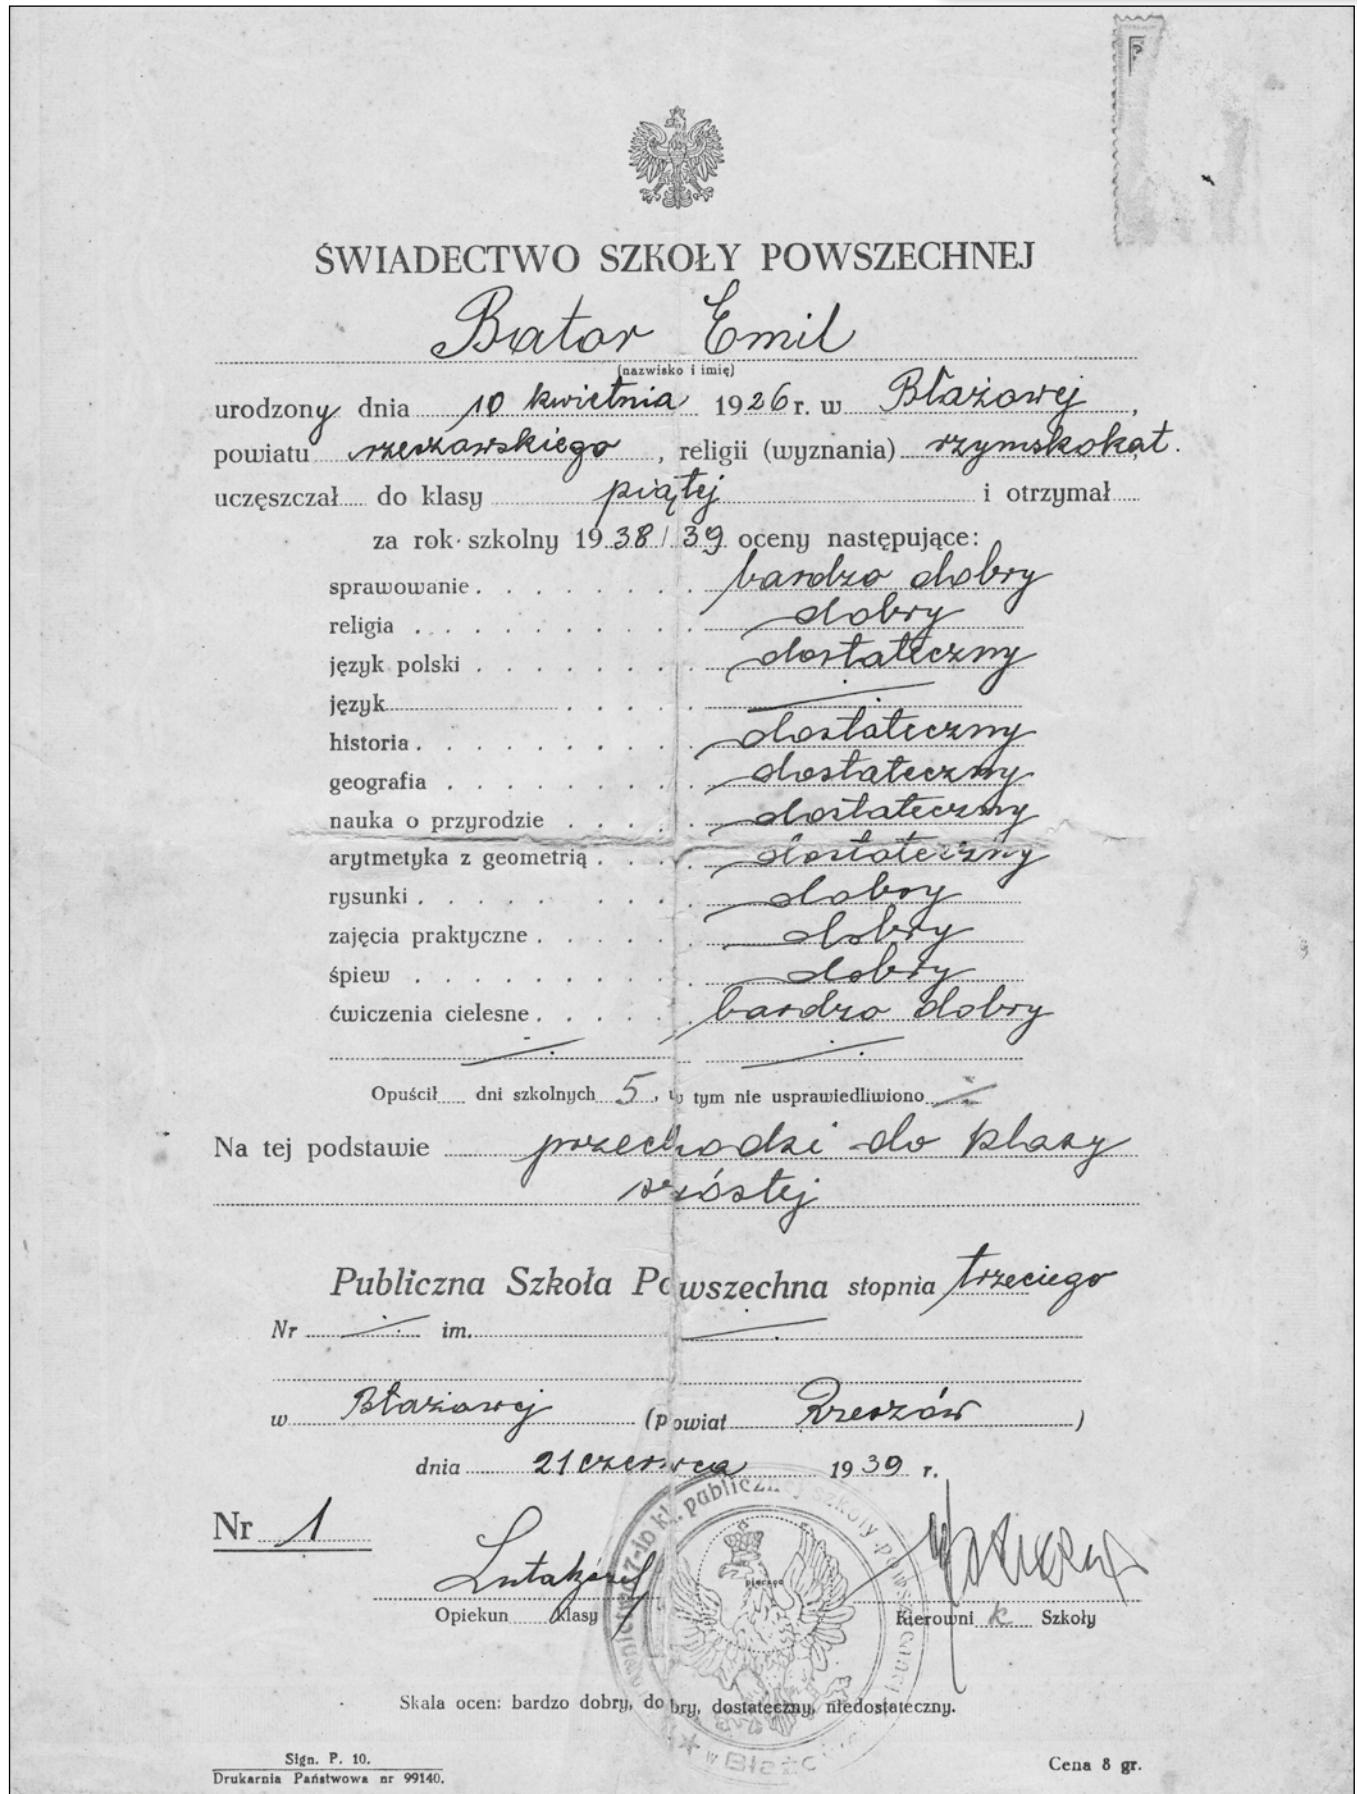 ŚWIADECTWO SZKOŁY POWSZECHNEJ
Bator Emil
(nazwisko i imię)
urodzony dnia 10 kwietnia 1926 r. w Błażowej,
powiatu rzeszowskiego, religii (wyznania) rzymskokat.
uczęszczał do klasy piątej i otrzymał
za rok szkolny 1938/39 oceny następujące:
sprawowanie bardzo dobry
religia dobry
język polski dostateczny
język
historia dostateczny
geografia dostateczny
nauka o przyrodzie dostateczny
arytmetyka z geometrią dostateczny
rysunki dobry
zajęcia praktyczne dobry
śpiew dobry
ćwiczenia cielesne bardzo dobry
Opuścił dni szkolnych 5, w tym nie usprawiedliwiono
Na tej podstawie przechodzi do klasy
szóstej
Publiczna Szkoła Powszechna stopnia trzeciego
Nr im.
w Błażowej (powiat Rzeszów)
dnia 21 czerwca 1939 r.
Nr 1
pieczęć
Opiekun klasy Kierownik Szkoły
7-io kl. publicznej szkoły powszechnej
w Błażo
Skala ocen: bardzo dobry, dobry, dostateczny, niedostateczny.
Sign. P. 10.
Drukarnia Państwowa nr 99140.
Cena 8 gr.